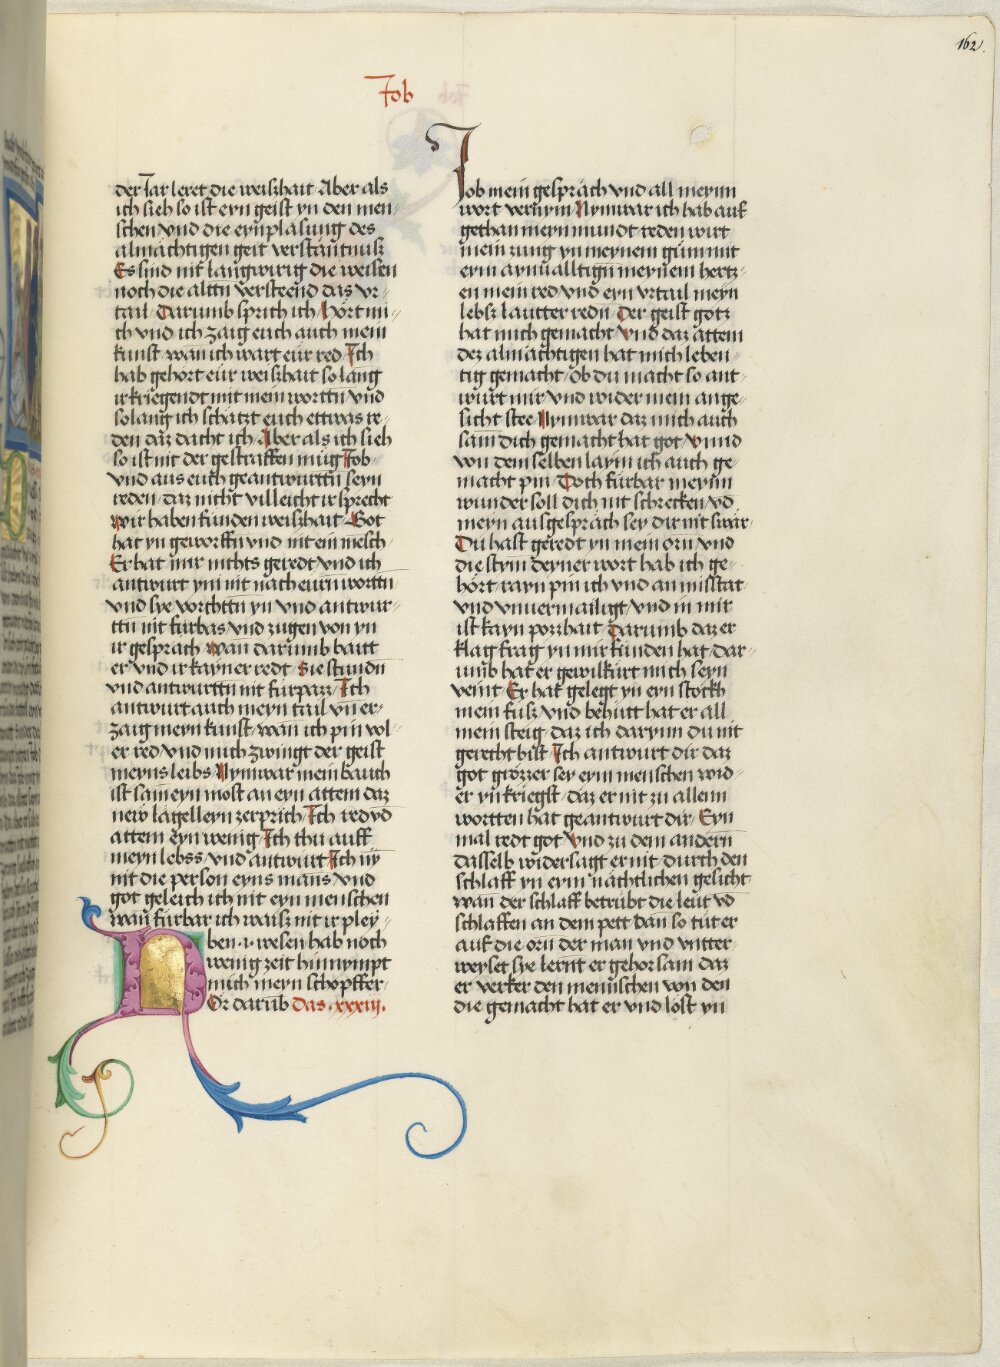 162.
Job
der Jar leret die weißhait Aber als
ich sieh so ist eyn geist yn den men-
schen vnd die eynplasung des
almächtigen geit verstäntnuß
Es sind nit langwirig die weisen
noch die alttn versteend das vr-
tail Darumb sprich ich Hört mi-
ch vnd ich zaig euch auch mein
kunst wan ich wart eür red Ich
hab gehört eür weißhait so lang
ir kriegendt mit mein worttn vnd
solang ich schätzt euch ettwas re-
den daz dacht ich Aber als ich sieh
so ist nit der gestraffen müg Job
vnd aus euch geantwurttn seyn
reden daz nicht villeicht ir sprecht
wir haben funden weißhait Got
hat yn geworffn vnd nit ein mesch
Er hat mir nichts geredt vnd ich
antwurt ym nit nach eürn worttn
vnd sye vorchttn yn vnd antwur-
ttn nit fürbas vnd zugen von yn
ir gespräch wan darumb baitt
er vnd ir kayner redt Sie stundn
vnd antwurttn nit fürpazz Ich
antwurt auch meyn tail vn er-
zaig meyn kunst wan ich pin vol-
er red vnd mich zwingt der geist
meyns leibs Nymwar mein bauch
ist sam eyn most an eyn attem daz
new lägelleyn zerprich Ich red vd
attem eyn wenig Ich thu auff
meyn lebss vnd antwurt Ich ny
nit die person eyns mans vnd
got geleich ich nit eyn menschen
wan fürbar ich waiß nit ir pley-
ben .i. wesen hab noch
wenig zeit hinnympt
mich meyn schöpffer
Or darüb das .xxxiij.
Job mein gespräch vnd all meynn
wort vernym Nymwar ich hab auf
gethan meyn mundt reden wirt
mein zung yn meynem gümmit
eym aynualltign meynem hertz-
en mein red vnd eyn vrtail meyn
lebsz lautter redn Der geist gotz
hat mich gemacht vnd daz attem
dez almächtigen hat mich leben-
tig gemacht Ob du macht so ant-
wurt mir vnd wider mein ange-
sicht stee Nymwar daz mich auch
sam dich gemacht hat got Vnnd
von dem selben laym ich auch ge-
macht pin Doch fürbar meynn
wunder soll dich nit schrecken vd
meyn ausgespräch sey dir nit swär
Du hast geredt yn mein orn vnd
die stym deyner wort hab ich ge-
hört rayn pin ich vnd an missetat
vnd vnuermailigt vnd in mir
ist kayn poszhait Darumb daz er
klag frag yn mir funden hat dar-
umb hat er gewilkürt mich seyn
veint Er hat gelegt yn eyn stockh
mein fusz vnd behütt hat er all
mein steig daz ich darynn du nit
gerecht bist Ich antwurt dir daz
got grözzer sey eym menschen wid-
er yn kriegst daz er nit zu allenn
wortten hat geantwurt dir Eyn
mal redt got vnd zu dem andern
dasselb widersagt er nit durch den
schlaff yn eym nächtlichen gesicht
wan der schlaff betrübt die leüt vd
schlaffen an dem pett dan so tüt er
auf die orn der man vnd vnter-
weyset sye lernt er gehorsam daz
er verker den mennschen von den
die gemacht hat er vnd löst yn